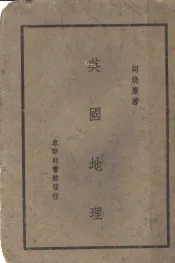 胡煥庸著
英國地理
京華印書館發行